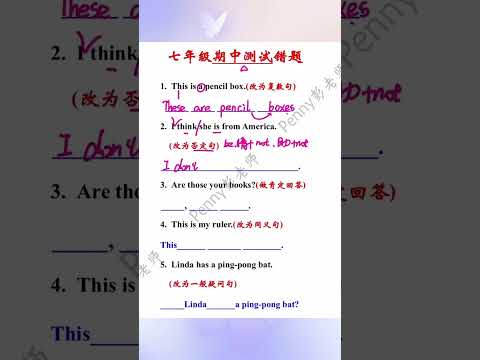 七年级期中测试错题
1. This is a pencil box.(改为复数句)
These are pencil boxes
2. I think she is from America.
(改为否定句) be.情+not.助+not
I don't
3. Are those your books?(做肯定回答)
_____, _____ _____.
4. This is my ruler.(改为同义句)
This_____ ______ _______.
5. Linda has a ping-pong bat.
(改为一般疑问句)
_____Linda______a ping-pong bat?
Penny彭老师
Penny彭老师